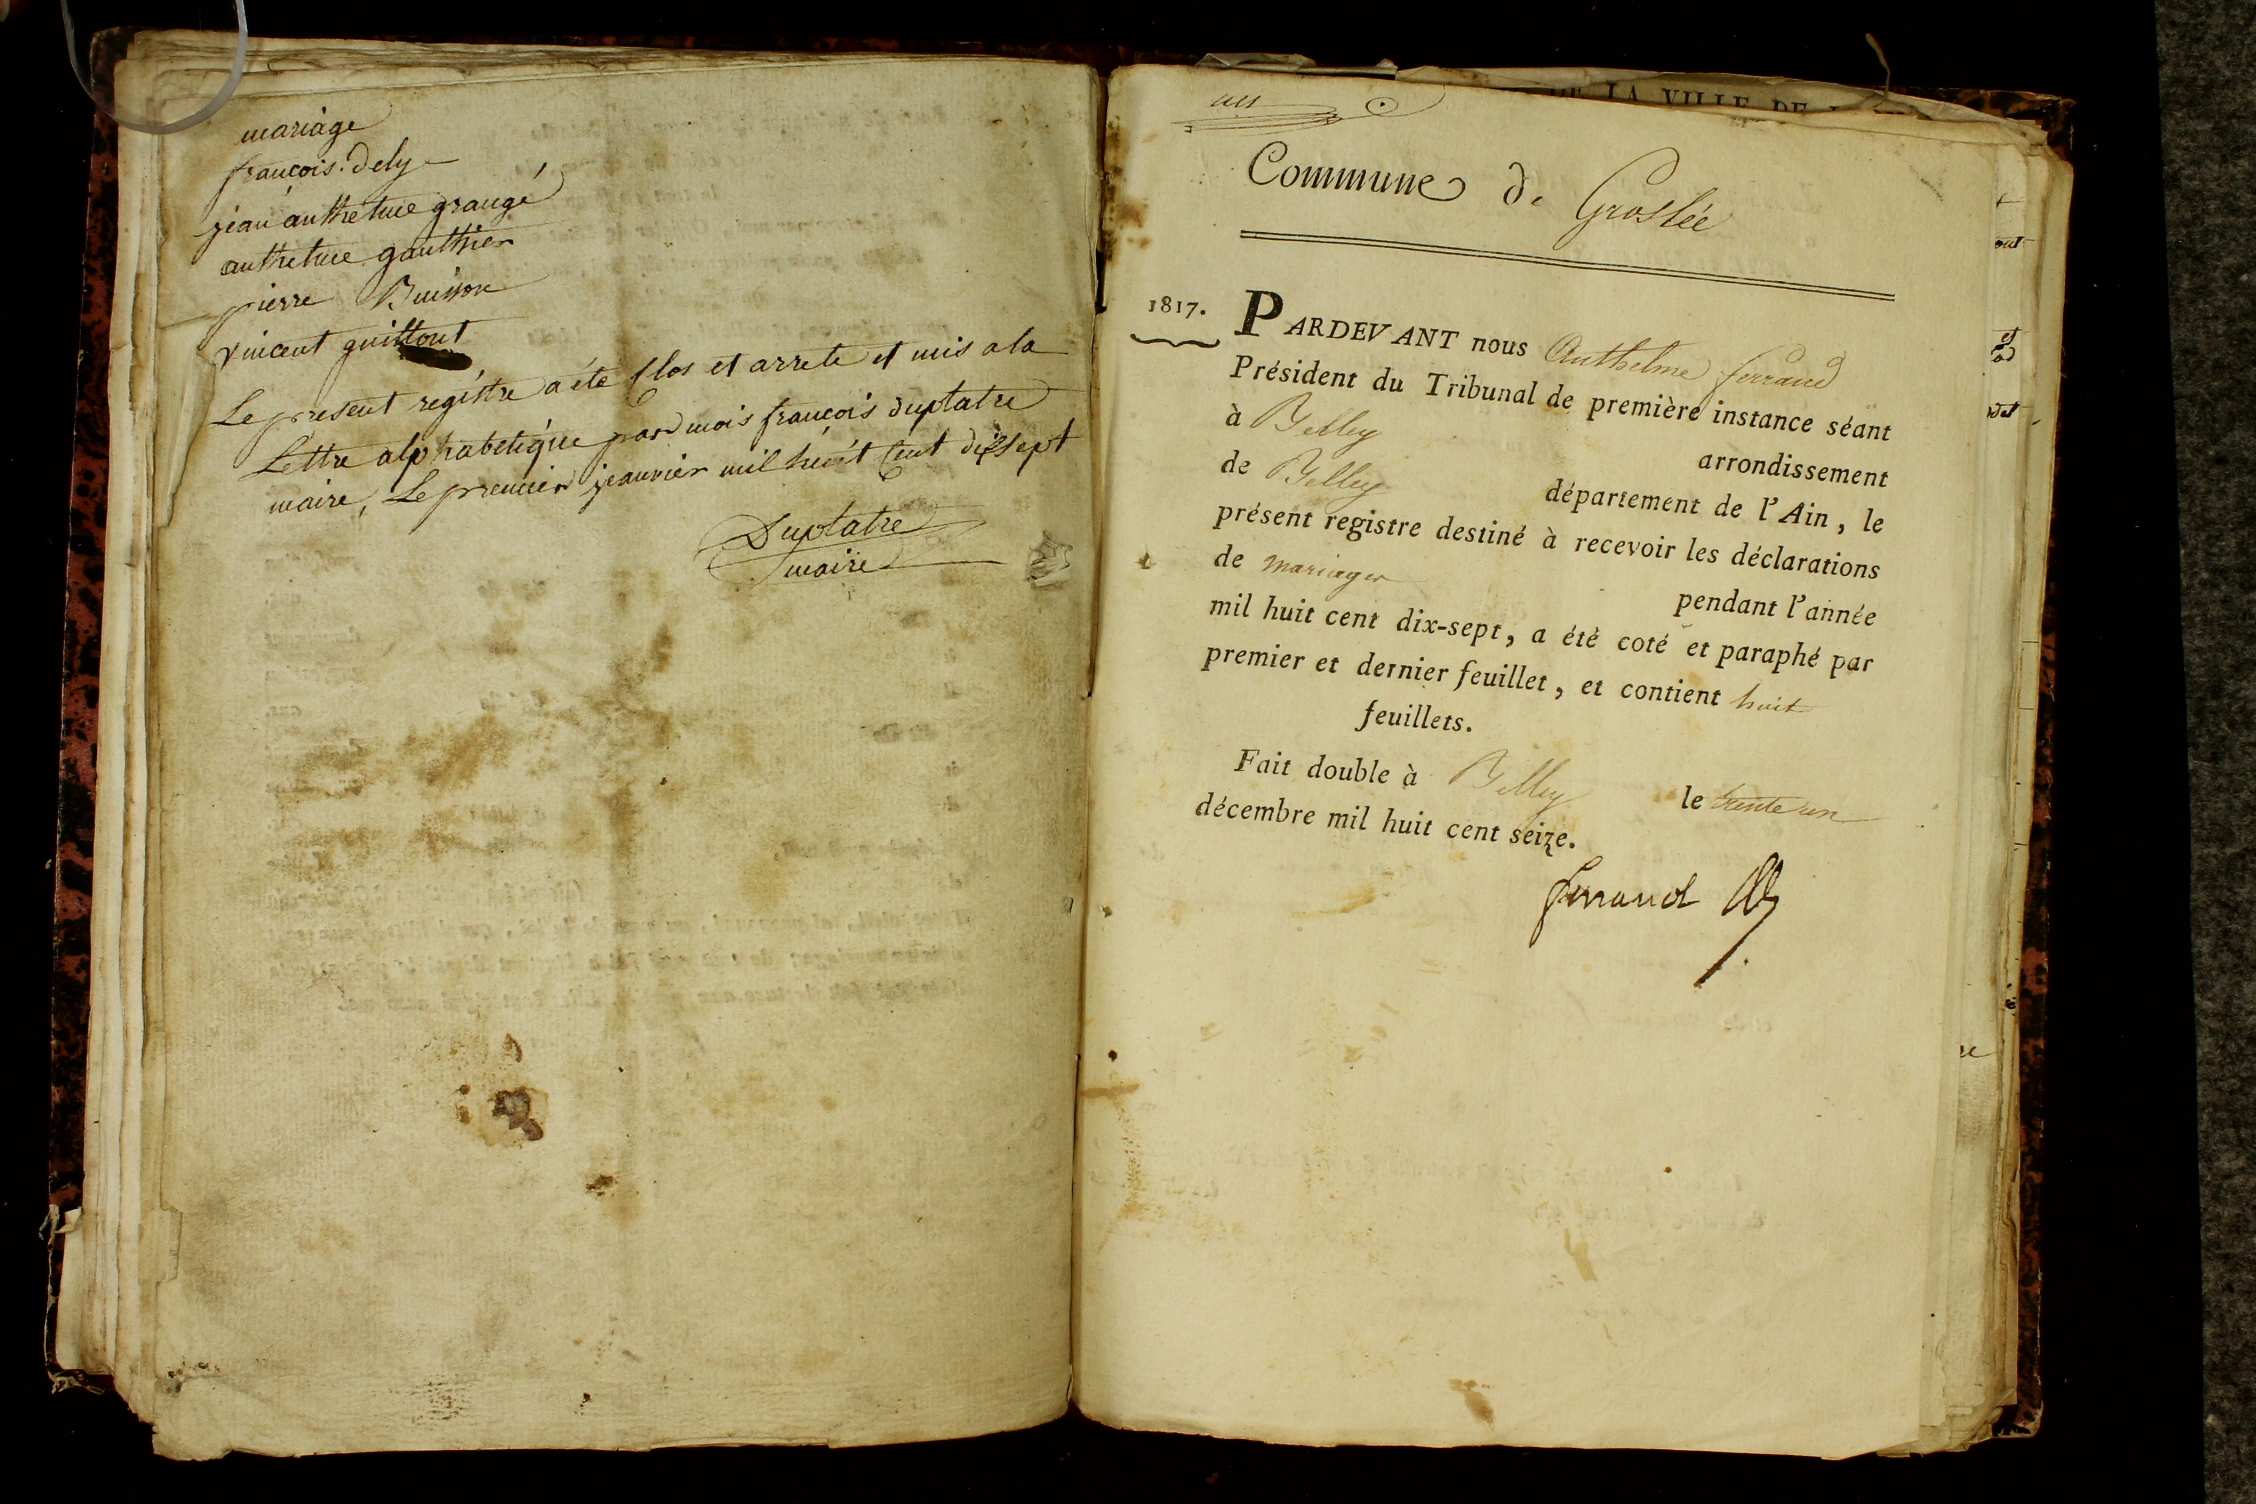 mariage
françois. Dely
jean anthelme grangé
anthelme gauthier
pierre Buisson
vincent guittout
Le present registre a été Clos et arrete et mis a la
Lettre alphabetique par mois françois duplatre
maire, Le premier jeanvier mil huit Cent dixsept
Duplatre
maire
DE LA VILLE DE
Commune de Groslée
1817.
PARDEVANT nous Anthelme ferrand
Président du Tribunal de première instance séant
à Belley arrondissement
de Belley département de l'Ain, le
présent registre destiné à recevoir les déclarations
de mariages pendant l'année
mil huit cent dix-sept, a été coté et paraphé par
premier et dernier feuillet, et contient huit
feuillets.
Fait double à Belley le trente un
décembre mil huit cent seize.
ferrand